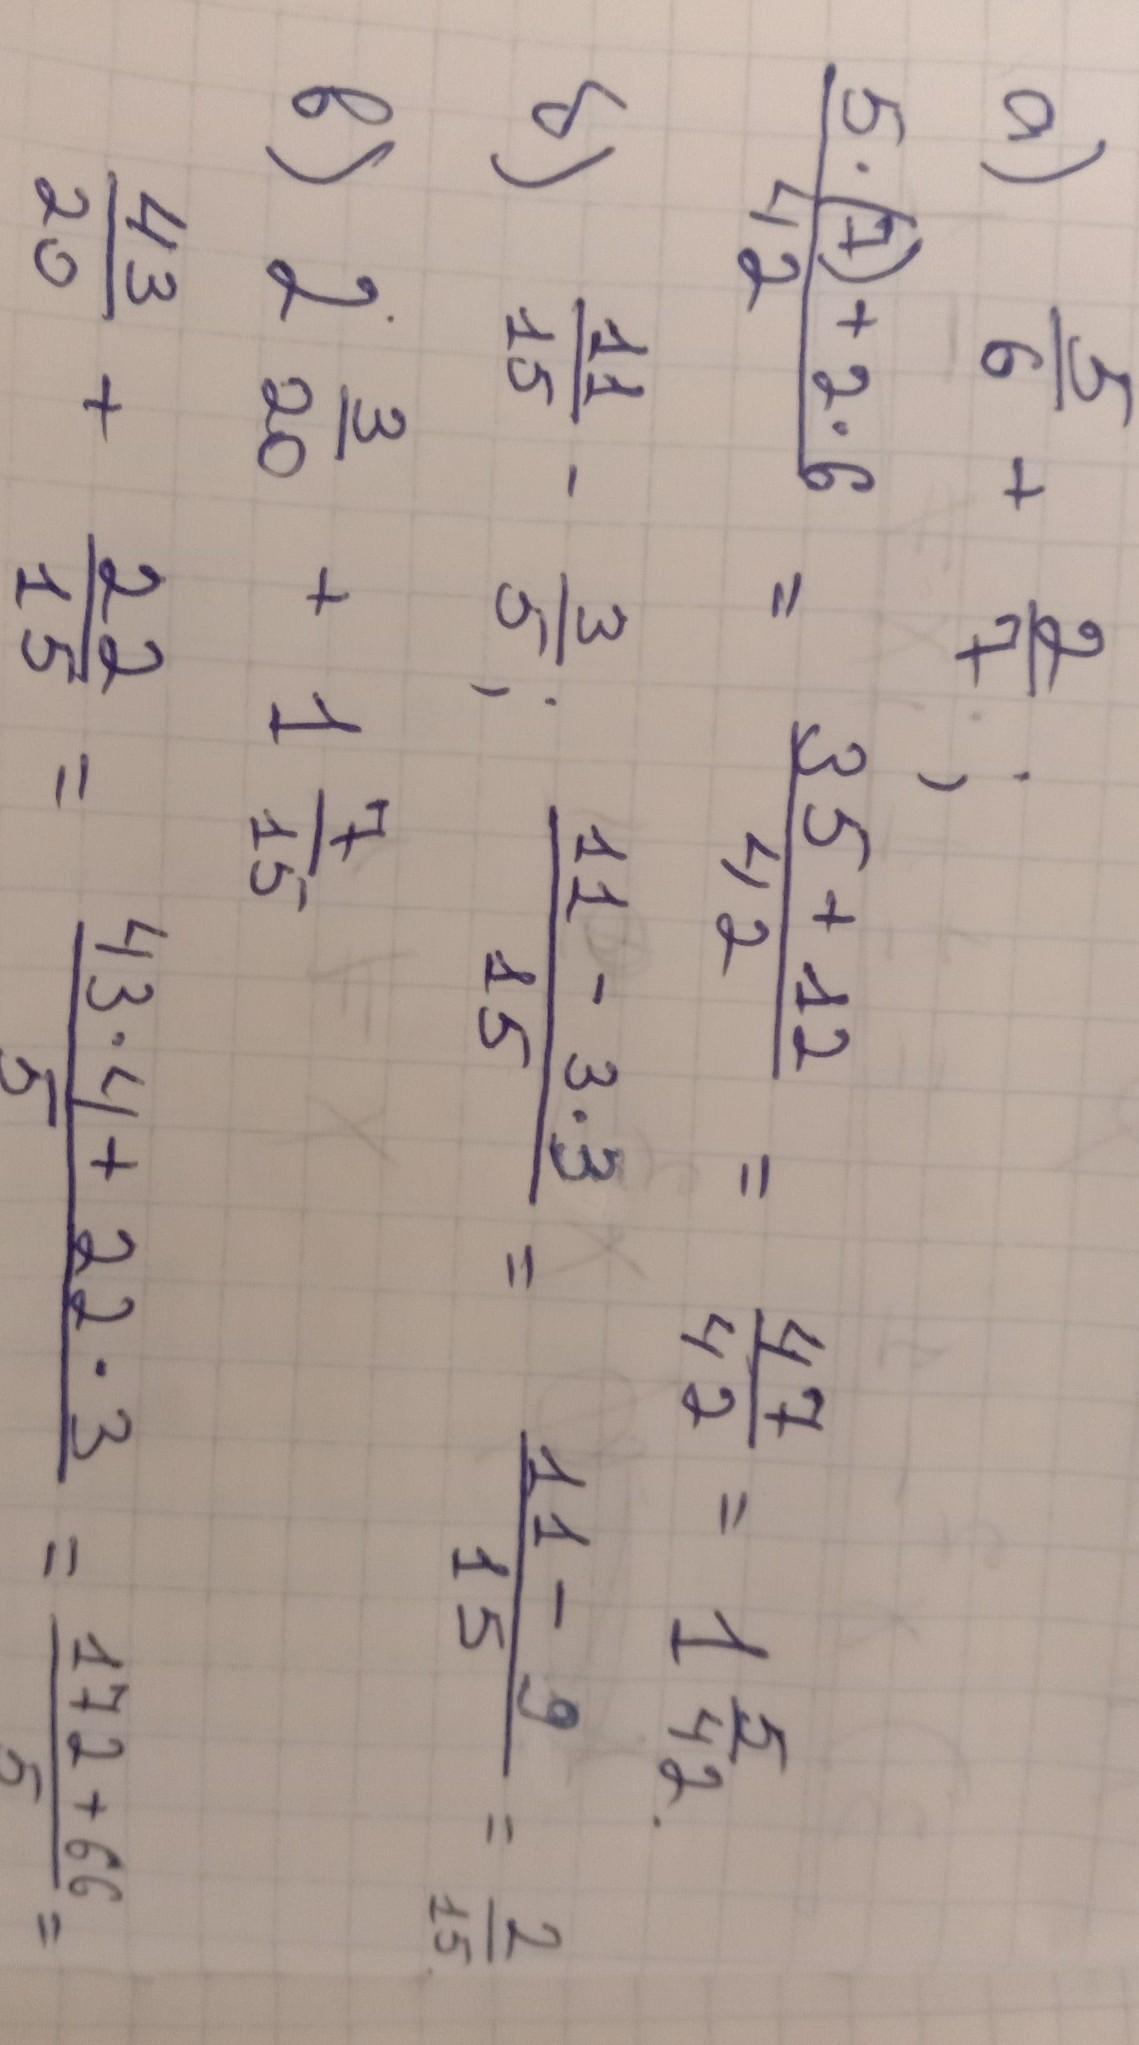 а) 5/6 + 2/7 ;
(5·(7) + 2·6)/42 = (35 + 12)/42 = 47/42 = 1 5/42.
б) 11/15 - 3/5 ; (11 - 3·3)/15 = (11 - 9)/15 = 2/15.
в) 2 3/20 + 1 7/15
43/20 + 22/15 = (43·4 + 22·3)/5 = (172 + 66)/5 =